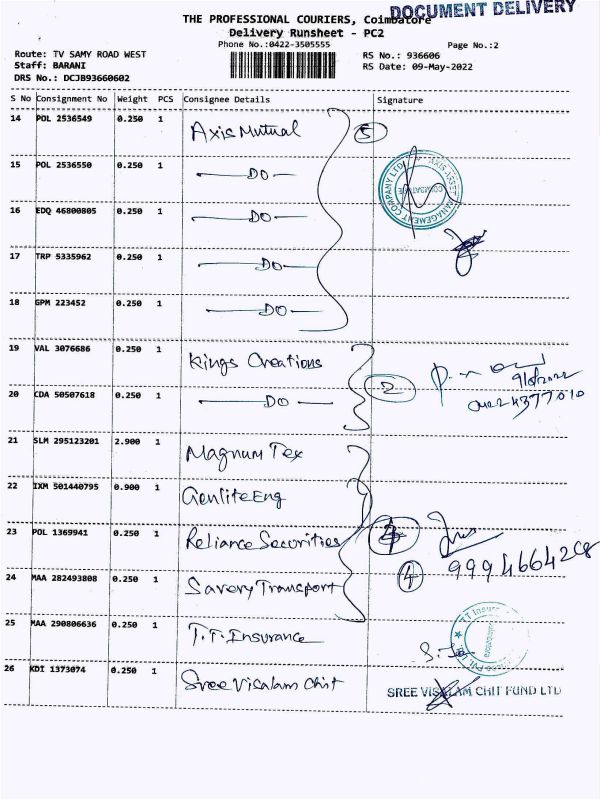 DOCUMENT DELIVERY
THE PROFESSIONAL COURIERS, Coimbatore
Delivery Runsheet - PC2
Phone No.:0422-3505555
Page No.:2
Route: TV SAMY ROAD WEST
RS No.: 936606
Staff: BARANI
RS Date: 09-May-2022
DRS No.: DCJB93660602
S No Consignment No Weight PCS Consignee Details Signature
14 POL 2536549 0.250 1 Axis Mutual 5
15 POL 2536550 0.250 1 DO
16 EDQ 46800805 0.250 1 DO
17 TRP 5335962 0.250 1 DO
18 GPM 223452 0.250 1 DO
19 VAL 3076686 0.250 1 Kings Creations
20 CDA 50507618 0.250 1 DO 2
21 SLM 295123201 2.900 1 Magnum Tex
22 IXM 501440795 0.900 1 Genlite Eng
23 POL 1369941 0.250 1 Reliance Securities 4
24 MAA 282493808 0.250 1 Savery Transport 4
25 MAA 290806636 0.250 1 T.T. Insurance
26 KDI 1373074 0.250 1 Sree Visalam Chit
SREE VISALAM CHIT FUND LTD